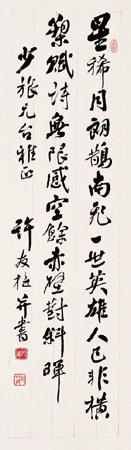 星稀月朗鵲南飛一世英雄人已非橫
槊賦詩無限感空餘赤壁對斜暉
少旅兄台雅正
許友并書